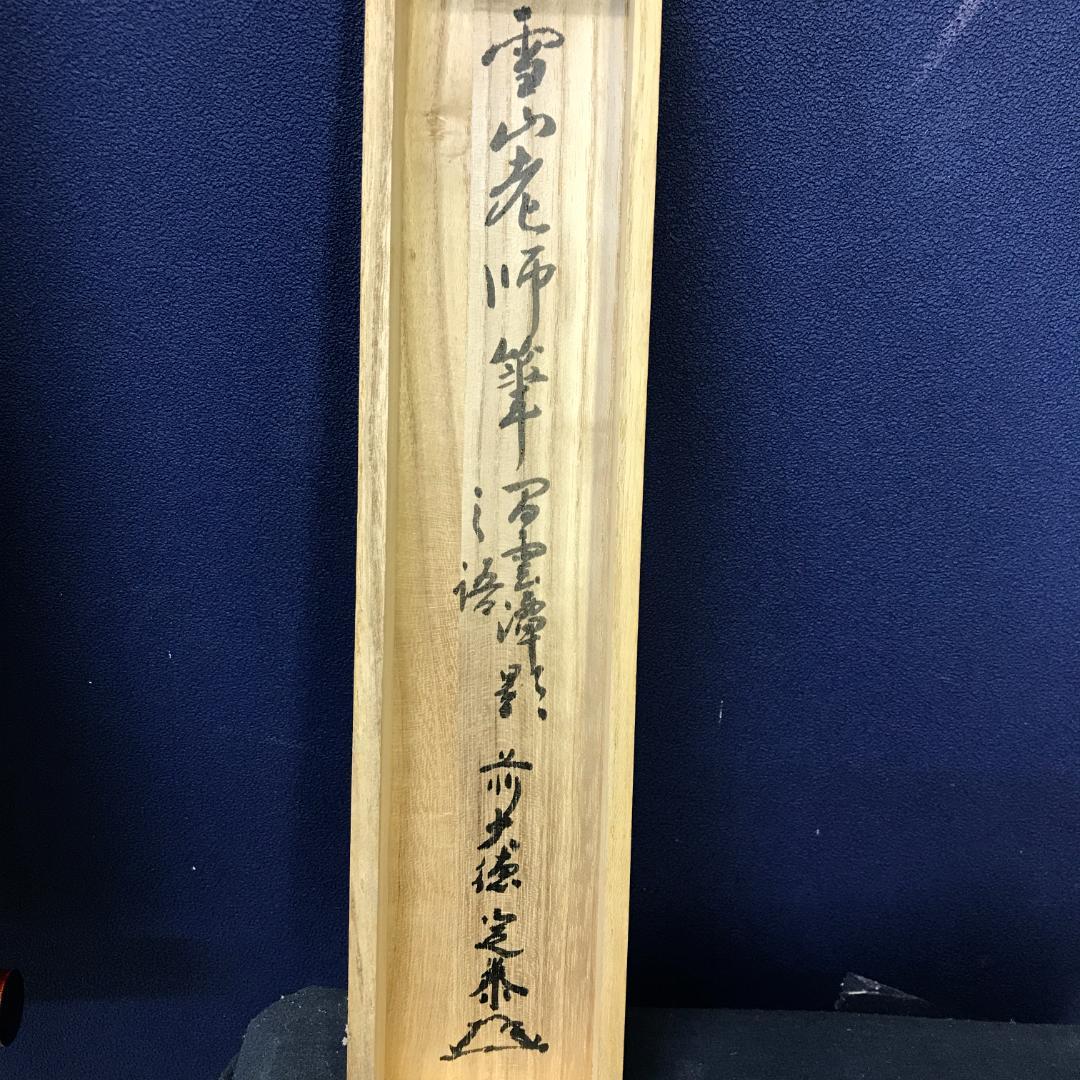 雪山老師筆 閑雲潭影
之語
前大徳 定泰